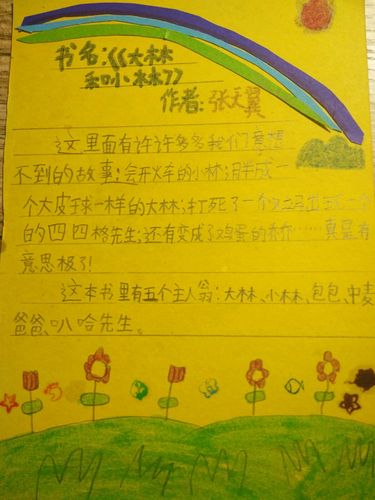 书名:《《大林
和小林》》
作者:张天翼
这里面有许许多多我们意想
不到的故事;会开火车的小林;胖成一
个大皮球一样的大林;打死了一个又
的四四格先生;还有变成鸡蛋的乔乔……真是有
意思极了!
这本书里有五个主人翁:大林、小林、包包、中麦
爸爸、叭哈先生。